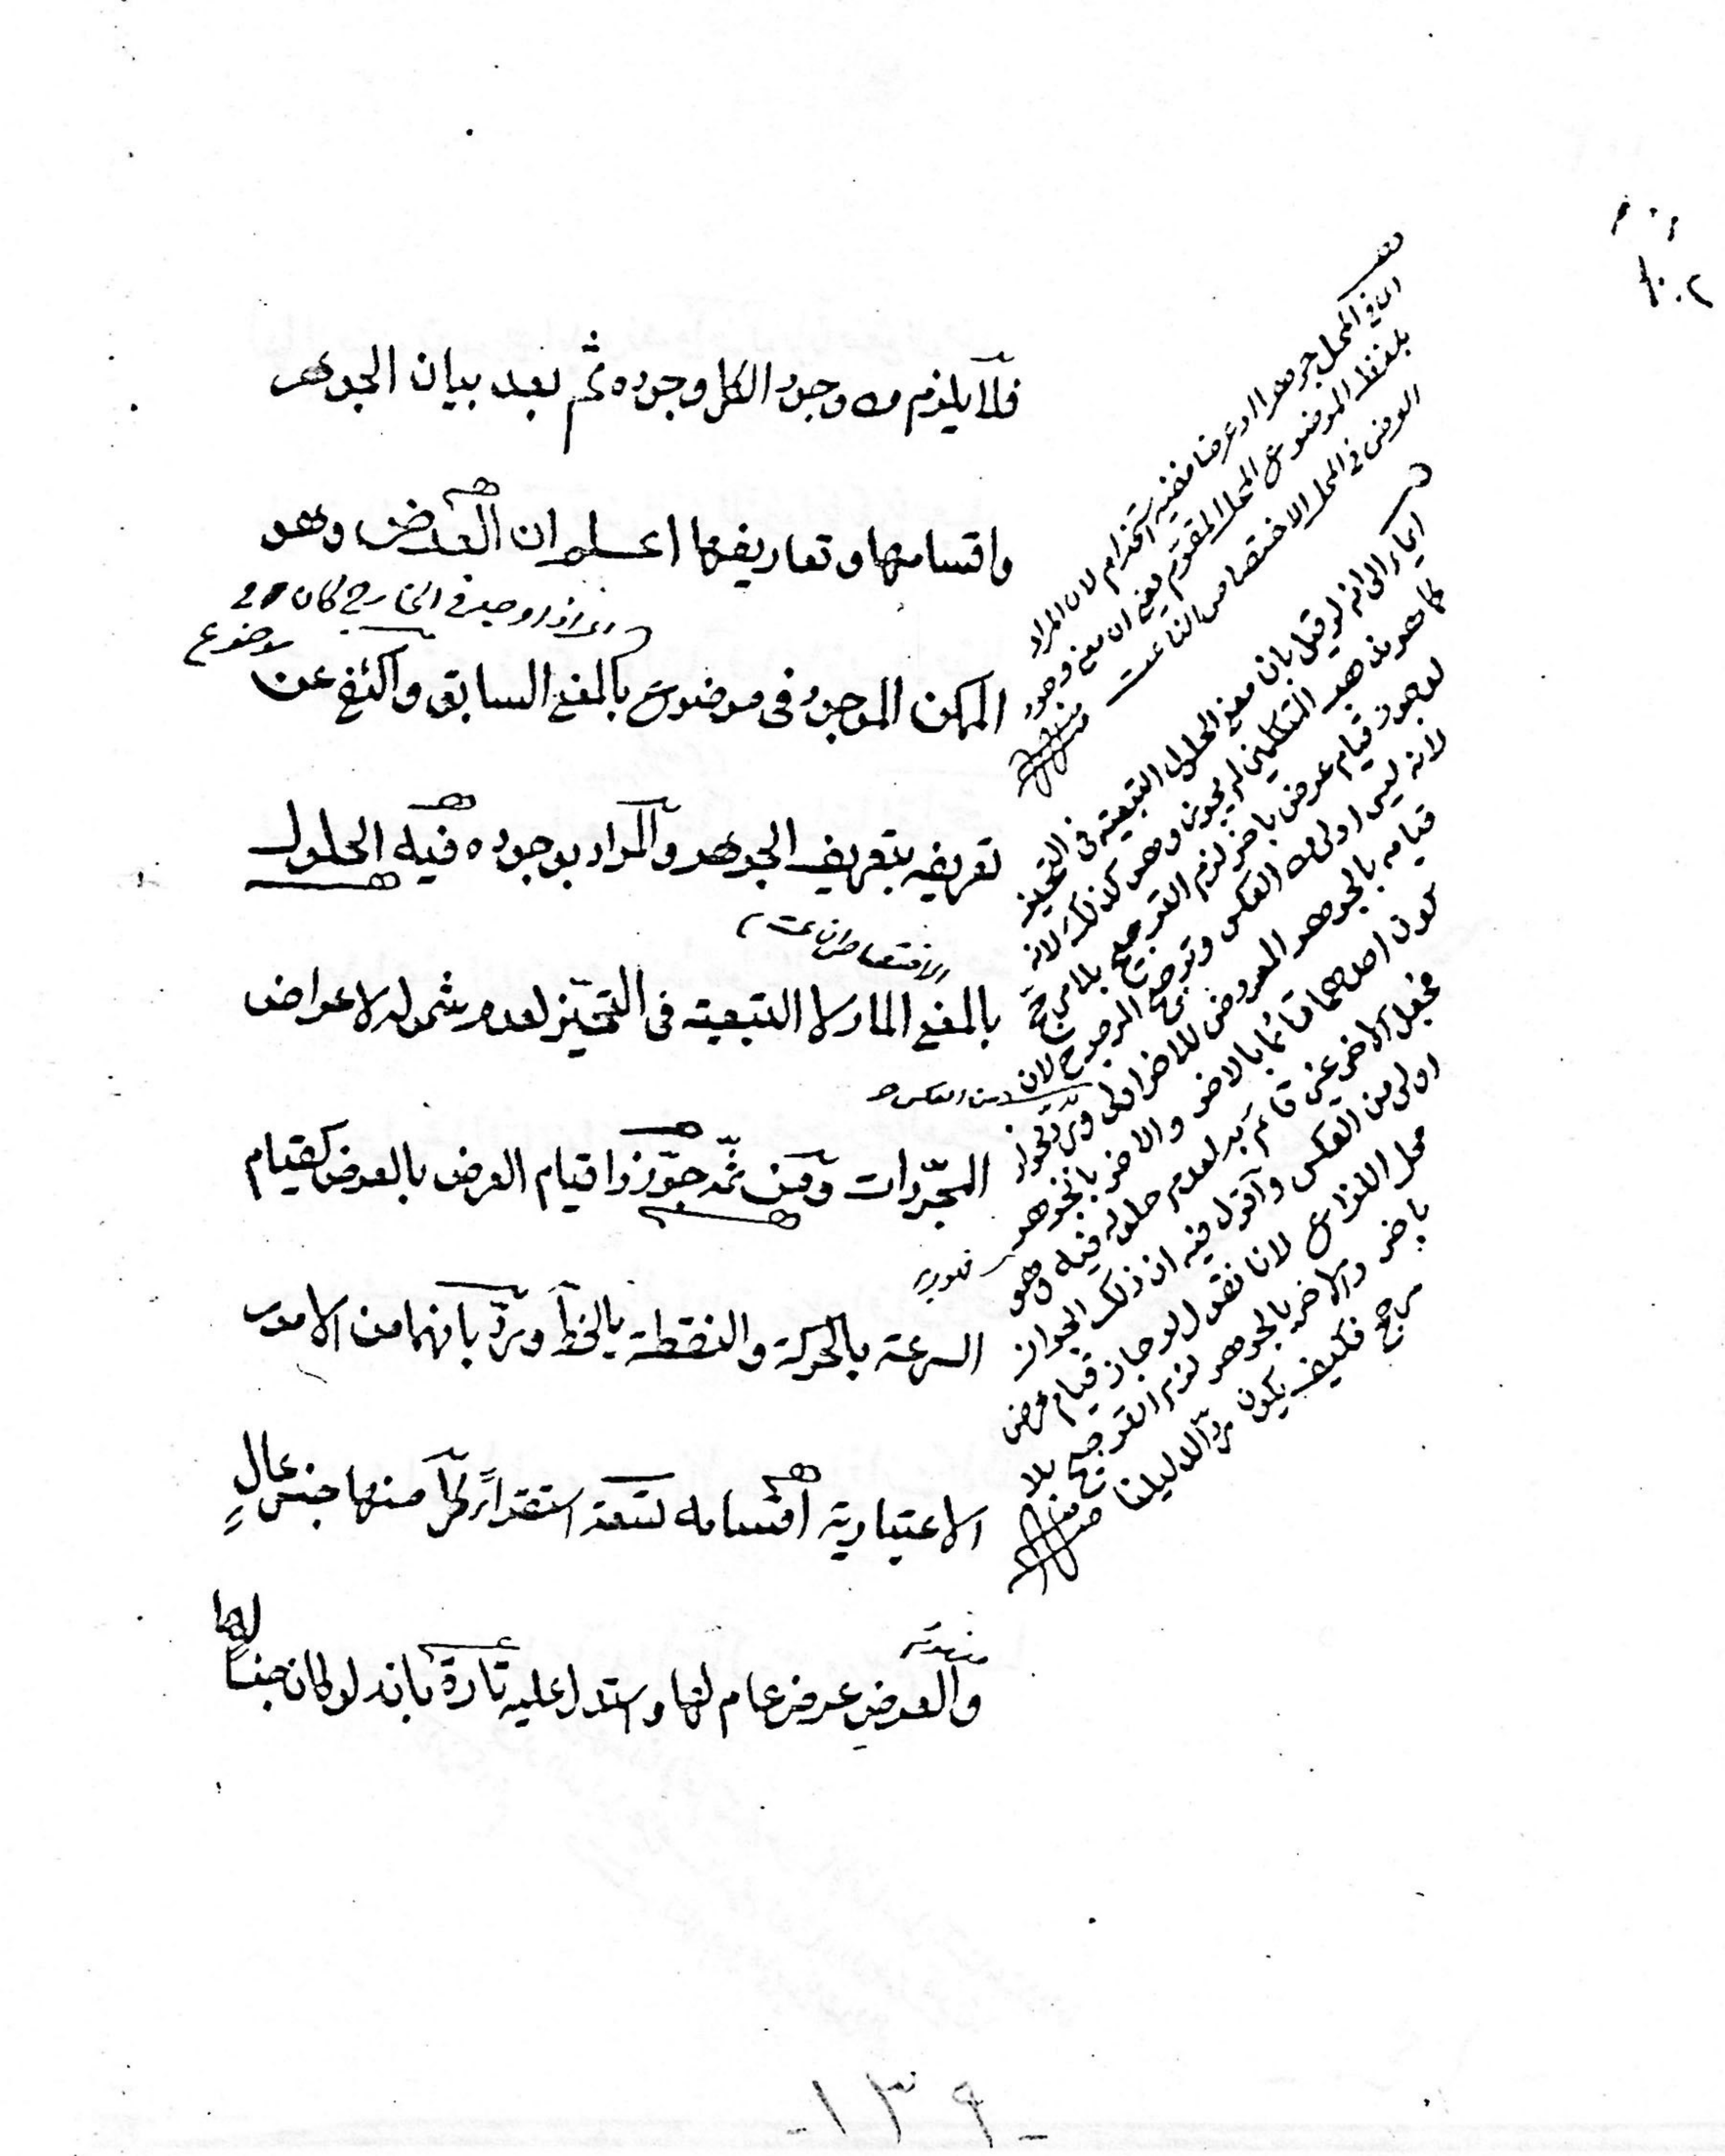 ١٠٢
فلا يلزم من وجود الكل وجوده ثم بعد بيان الجوهر
واقسامها وتعاريفها اعلم ان العرض وهو
اذا وجد في الخارج كان في
موضوع
الممكن الموجود فى موضوع بالمعنى السابق واكتفى عن
تعريفه بتعريف الجوهر والمراد بوجوده فيه الحلول
الاختصاص الناعت
بالمعنى المار لا التبعية فى التحيز لعدم شموله لاعراض
المجردات ومن ثمه جوزوا قيام العرض بالعرض كقيام
السرعة بالحركة والنقطة بالخط ورد بانهما من الامور
الاعتبارية اقسامه تسعة استقراءً كل منها جنس عالٍ
والعرض عرض عام لها واستدل عليه تارة بانه لو كان جنساً لها
اى فى المحل جوهرا او عرضا ففيه استخدام لان المراد
بلفظ الموضوع المحل المقوم يعنى ان معنى وجود
العرض فى المحل الاختصاص الناعت
ايماء الى انه لو قيل بان معنى الحلول التبعية فى التحيز
كما هو مذهب المتكلمين لم يجوزوه وهو كذلك لانه
لو جوز قيام عرض باخر لزم الترجيح بلا مرجح
لانه ليس اولى من العكس وترجيح المرجوح لان
قيامه بالجوهر المعروض للاخر اولى ورد بجواز
كون احدهما قائما بالاخر والاخر بالجوهر
فجعل الاخر غير قائم به لعدم حلوله فيه وهو
اولى من العكس واقول فيه ان ذلك الجواز
محل النزاع لان نقول لو جاز قيام عرض
باخر والاخر بالجوهر لزم الترجيح بلا
مرجح فكيف يكون رد الدليلنا
منه
-١٣٩-